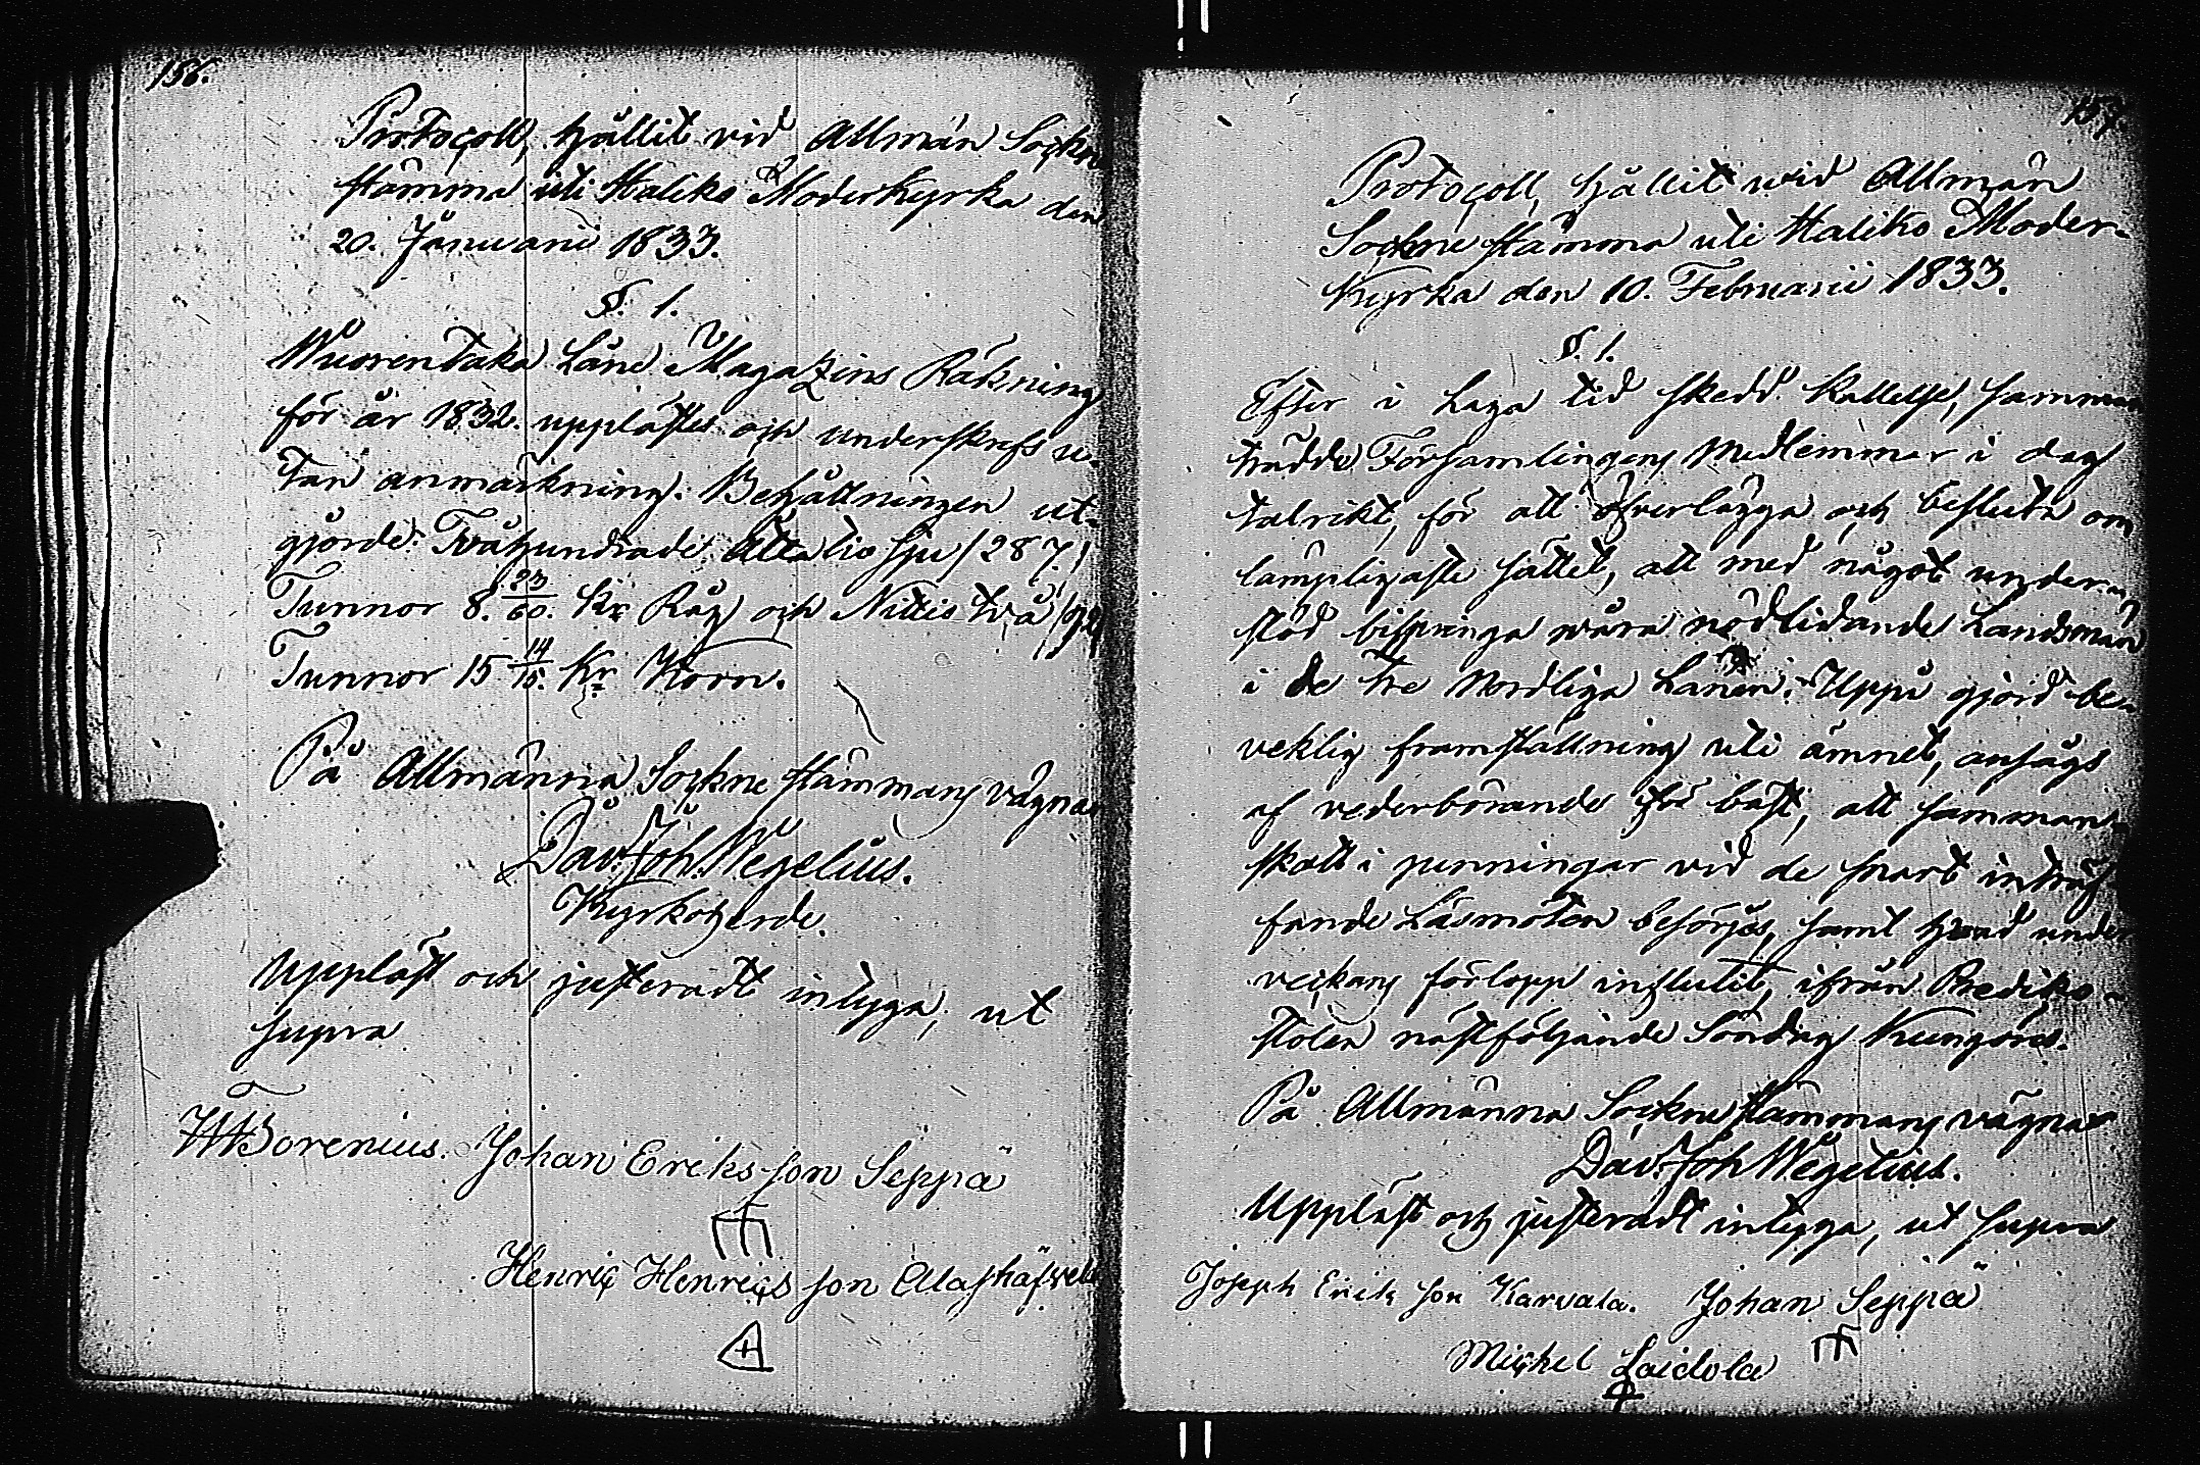 156.
Protocoll, hållit vid Allmän Sockne
stämma uti Haliko Moderkyrka den
20. Januarii 1833.
§. 1.
Wuorentaka Låne Magazins Räkning
för år 1832. upplästes och underskrefs u-
tan anmärkning. Behållningen ut-
gjorde Tvåhundrade Åttatio sju /287./
Tunnor 8. 23/60. Kr Råg och Nittio två /92/
Tunnor 15 14/15. Kr Korn.
På Allmänna Sockne stämmans vägnar
Dav. Joh. Wegelius.
Kyrkoherde.
Uppläst och justeradt intyga, ut
supra
Borenius. Johan Eriks son Seppä
Henric Henrics son
157.
Protocoll, hållit vid Allmän
Sockne stämma uti Haliko Moder-
kyrka den 10. Februarii 1833.
§. 1.
Efter i Laga tid skedd Kallelse, samman
trädde Församlingens Medlemmar i dag
talrikt, för att öfverlägga och besluta om
lämpligaste sättet, att med något under-
stöd bispringa våra nödlidande Landsmän
i de tre Nordliga Länen. Uppå gjord be-
veklig framställning uti ämnet, ansågs
af vederbörande för bäst, att samman-
skott i penningar vid de snart inträf
fande Läsmöten besörjes, samt hvad under
veckans förlopp influtit, ifrån Prediko-
stolen nästföljande Söndag kungöres.
På Allmänna Sockne stämmans vägnar
Dav. Joh Wegelius.
Uppläst och justeradt intyga, ut supra
Joseph Erik son Karvala. Johan Seppä
Michel Laidola